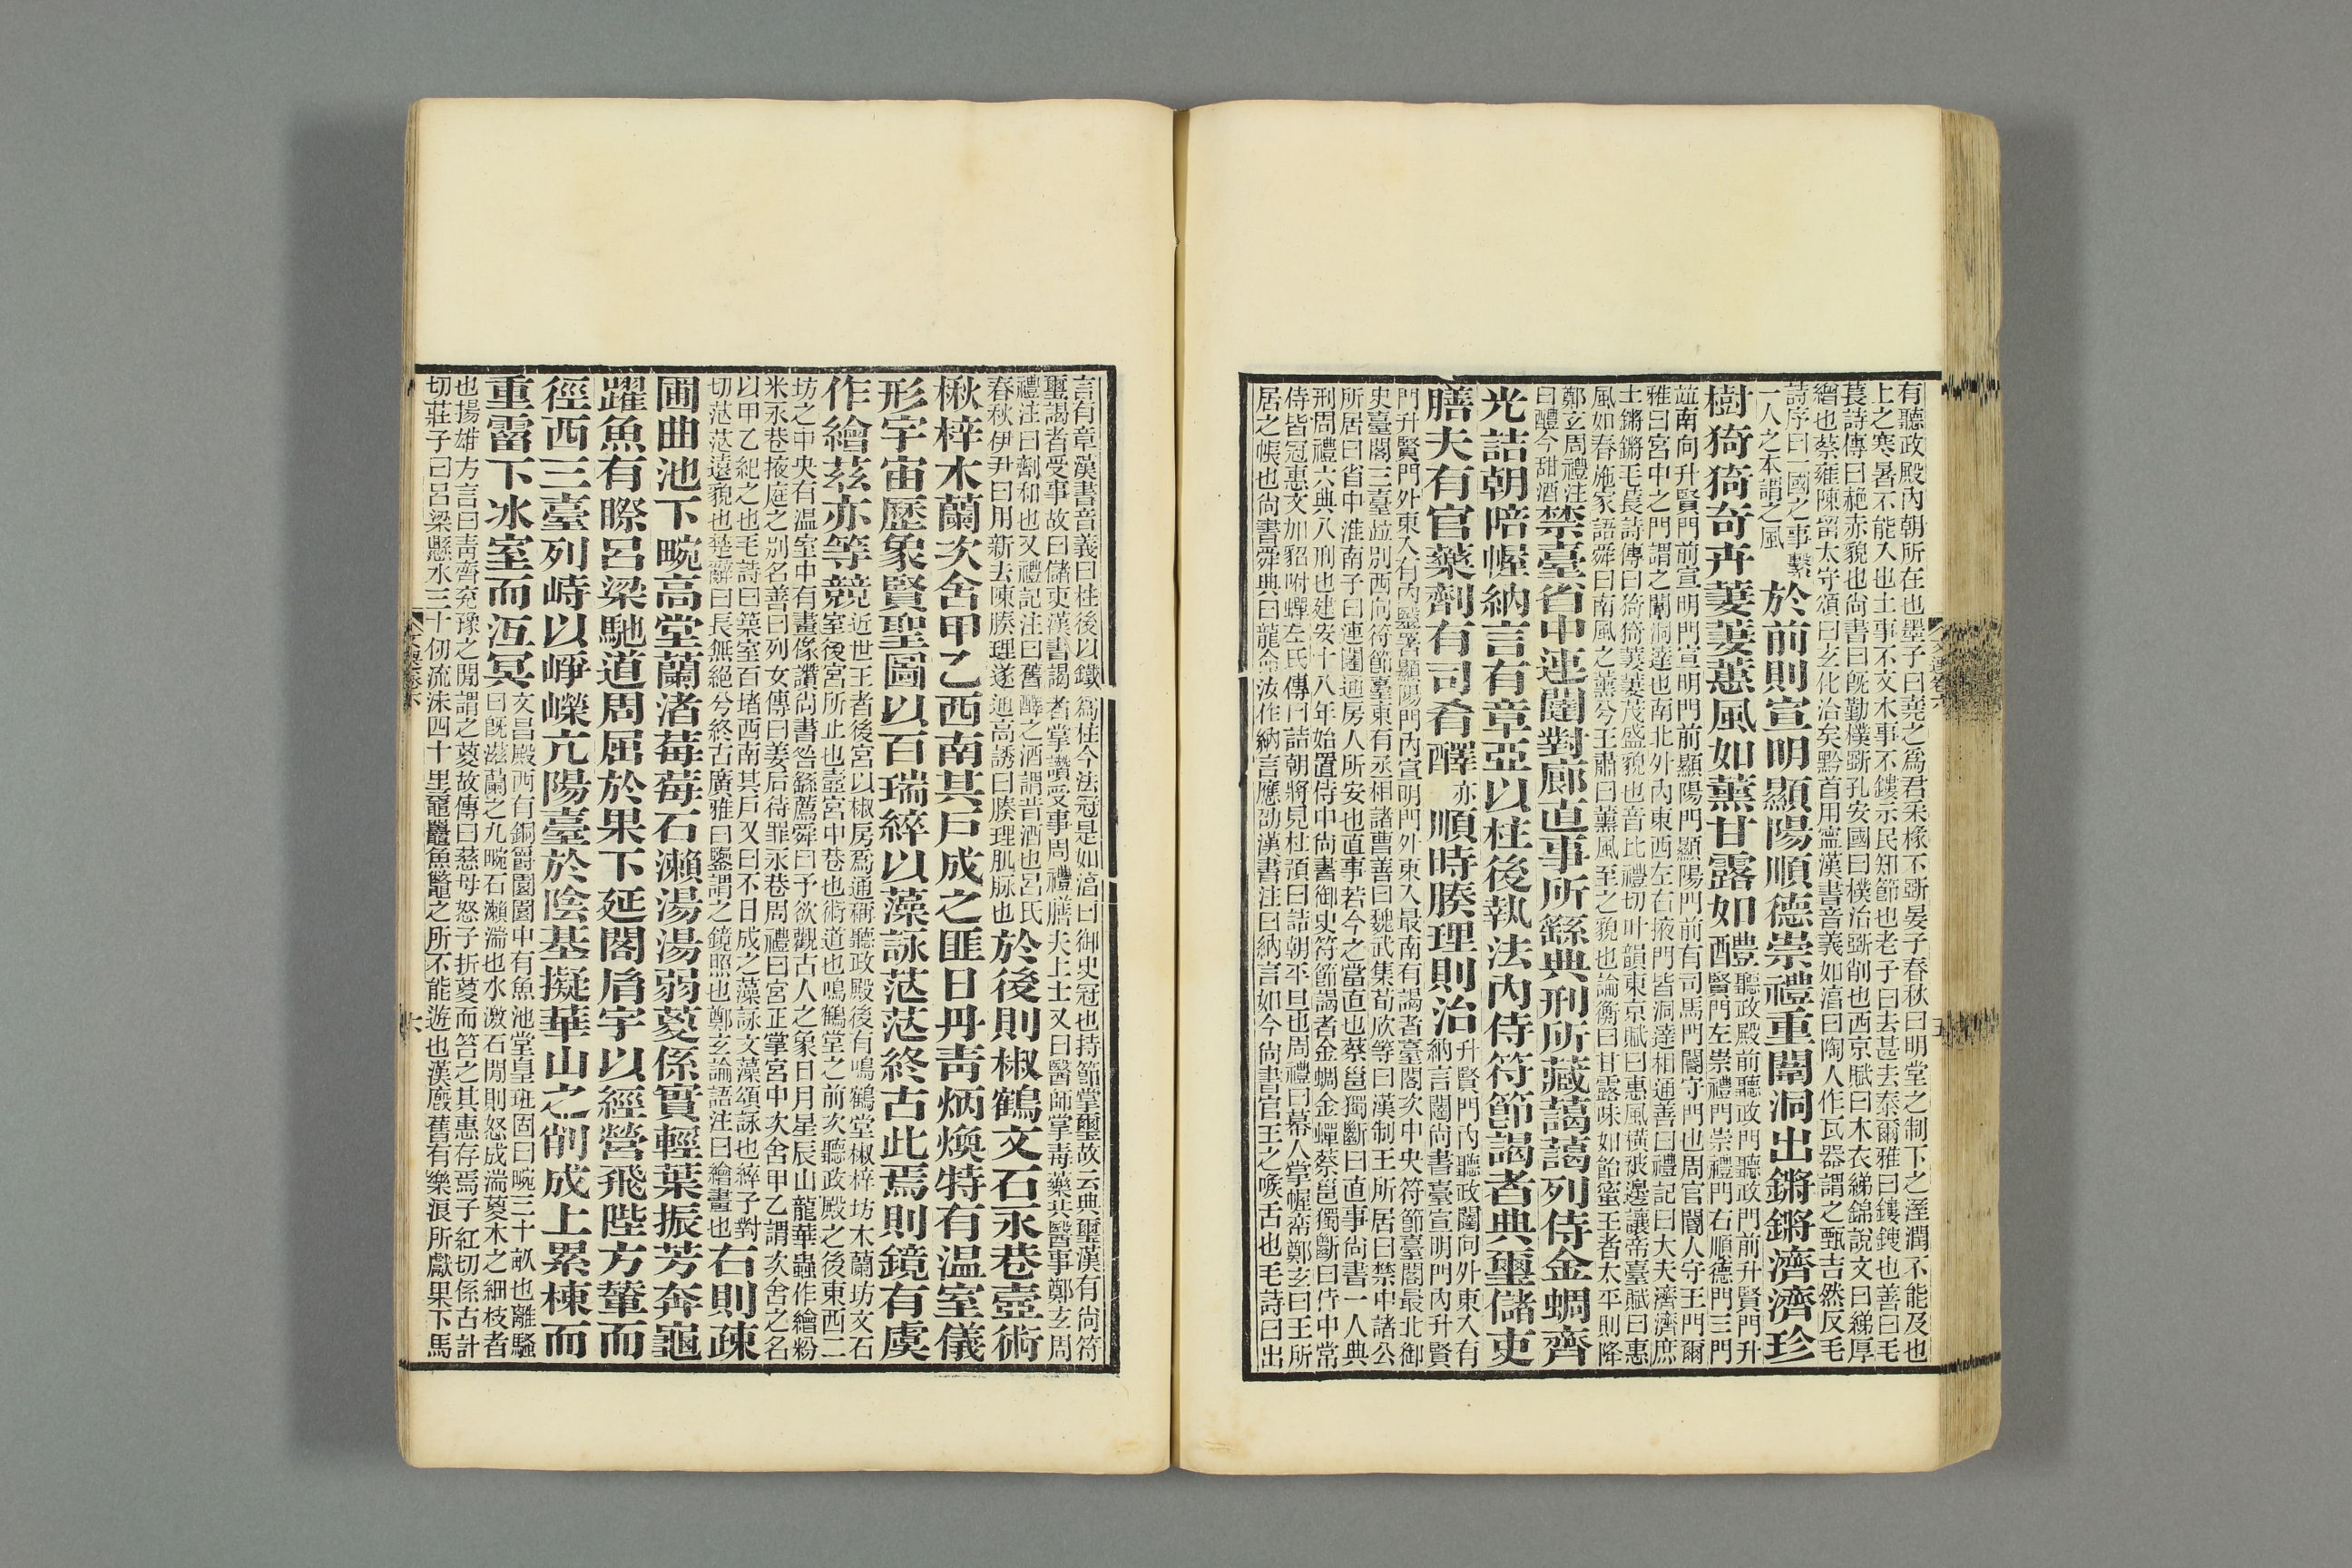 有聽政殿內朝所在也墨子曰堯之爲君采椽不斲晏子春秋曰明堂之制下之溼潤不能及也
上之寒暑不能入也土事不文木事不鏤示民知節也老子曰去甚去泰爾雅曰鏤鎪也善曰毛
萇詩傳曰赩赤貌也尚書曰旣勤樸斲孔安國曰樸治斲削也西京賦曰木衣綈錦說文曰綈厚
繒也蔡雍陳留太守頌曰玄化洽矣黔首用寧漢書音義如淳曰陶人作瓦器謂之甄吉然反毛
詩序曰一國之事繫
一人之本謂之風
於前則宣明顯陽順德崇禮重闈洞出鏘鏘濟濟珍
樹猗猗奇卉萋萋蕙風如薰甘露如醴
聽政殿前聽政門聽政門前升賢門升
賢門左崇禮門崇禮門右順德門三門
竝南向升賢門前宣明門宣明門前顯陽門顯陽門前有司馬門閽守門也周官閽人守王門爾
雅曰宮中之門謂之闈洞達也南北外內東西左右掖門皆洞達相通善曰禮記曰大夫濟濟庶
士鏘鏘毛萇詩傳曰猗猗萋萋茂盛貌也音比禮切叶韻東京賦曰惠風橫被邊讓帝臺賦曰惠
風如春施家語舜曰南風之薰兮王肅曰薰風至之貌也論衡曰甘露味如飴蜜王者太平則降
鄭玄周禮注
曰醴今甜酒
禁臺省中連闥對廊直事所繇典刑所藏藹藹列侍金蜩齊
光詰朝陪幄納言有章亞以柱後執法內侍符節謁者典璽儲吏
膳夫有官藥劑有司肴醳亦順時腠理則治
升賢門內聽政闥向外東入有
納言闥尚書臺宣明門內升賢
門升賢門外東入有內醫署顯陽門內宣明門外東入最南有謁者臺閣次中央符節臺閣最北御
史臺閣三臺竝別西向符節臺東有丞相諸曹善曰魏武集荀欣等曰漢制王所居曰禁中諸公
所居曰省中淮南子曰連闥通房人所安也直事若今之當直也蔡邕獨斷曰直事尚書一人典
刑周禮六典八刑也建安十八年始置侍中尚書御史符節謁者金蜩金蟬蔡邕獨斷曰侍中常
侍皆冠惠文加貂附蟬左氏傳曰詰朝將見杜預曰詰朝平旦也周禮曰幕人掌幄帟鄭玄曰王所
居之帳也尚書舜典曰龍命汝作納言應劭漢書注曰納言如今尚書官王之喉舌也毛詩曰出
言有章漢書音義曰柱後以鐵爲柱今法冠是如淳曰御史冠也持節掌璽故云典璽漢有尚符
璽謁者受事故曰儲吏漢書謁者掌讚受事周禮膳夫上士又曰醫師掌毒藥共醫事鄭玄周
禮注曰劑和也又禮記注曰舊醳之酒謂昔酒也呂氏
春秋伊尹曰用新去陳腠理遂通高誘曰腠理肌脉也
於後則椒鶴文石永巷壼術
楸梓木蘭次舍甲乙西南其戶成之匪日丹青炳煥特有温室儀
形宇宙歷象賢聖圖以百瑞綷以藻詠茫茫終古此焉則鏡有虞
作繪茲亦等競
近世王者後宮以椒房爲通稱聽政殿後有鳴鶴堂椒梓坊木蘭坊文石
室後宮所止也壼宮中巷也術道也鳴鶴堂之前次聽政殿之後東西二
坊之中央有温室中有畫像讚尚書咎繇薦舜曰予欲觀古人之象日月星辰山龍華蟲作繪粉
米永巷掖庭之別名善曰列女傳曰姜后待罪永巷周禮曰宮正掌宮中次舍甲乙謂次舍之名
以甲乙紀之也毛詩曰築室百堵西南其戶又曰不日成之藻詠文藻頌詠也綷子對
切茫茫遠貌也楚辭曰長無絕兮終古廣雅曰鑒謂之鏡照也鄭玄論語注曰繪畫也
右則疎
圃曲池下畹高堂蘭渚莓莓石瀨湯湯弱葼係實輕葉振芳奔龜
躍魚有瞭呂梁馳道周屈於果下延閣胤宇以經營飛陛方輦而
徑西三臺列峙以崢嶸亢陽臺於陰基擬華山之削成上累棟而
重霤下冰室而沍冥
文昌殿西有銅爵園園中有魚池堂皇班固曰畹三十畝也離騷
曰旣滋蘭之九畹石瀨湍也水激石閒則怒成湍葼木之細枝者
也揚雄方言曰青齊兗豫之閒謂之葼故傳曰慈母怒子折葼而笞之其惠存焉子紅切係古計
切莊子曰呂梁懸水三十仞流沫四十里黿鼉魚鼈之所不能遊也漢廄舊有樂浪所獻果下馬
六